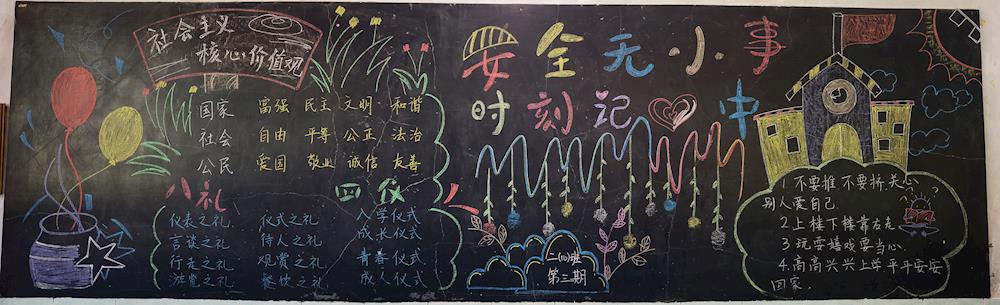 社会主义
核心价值观
国家 富强 民主 文明 和谐
社会 自由 平等 公正 法治
公民 爱国 敬业 诚信 友善
八礼 四仪
仪表之礼 仪式之礼 入学仪式
言谈之礼 待人之礼 成长仪式
行走之礼 观赏之礼 青春仪式
游览之礼 餐饮之礼 成人仪式
安全无小事
时刻记心中
二(10)班
第三期
1.不要推不要挤关心
别人爱自己.
2.上楼下楼靠右走
3.玩耍嬉戏要当心.
4.高高兴兴上学平平安安
回家.